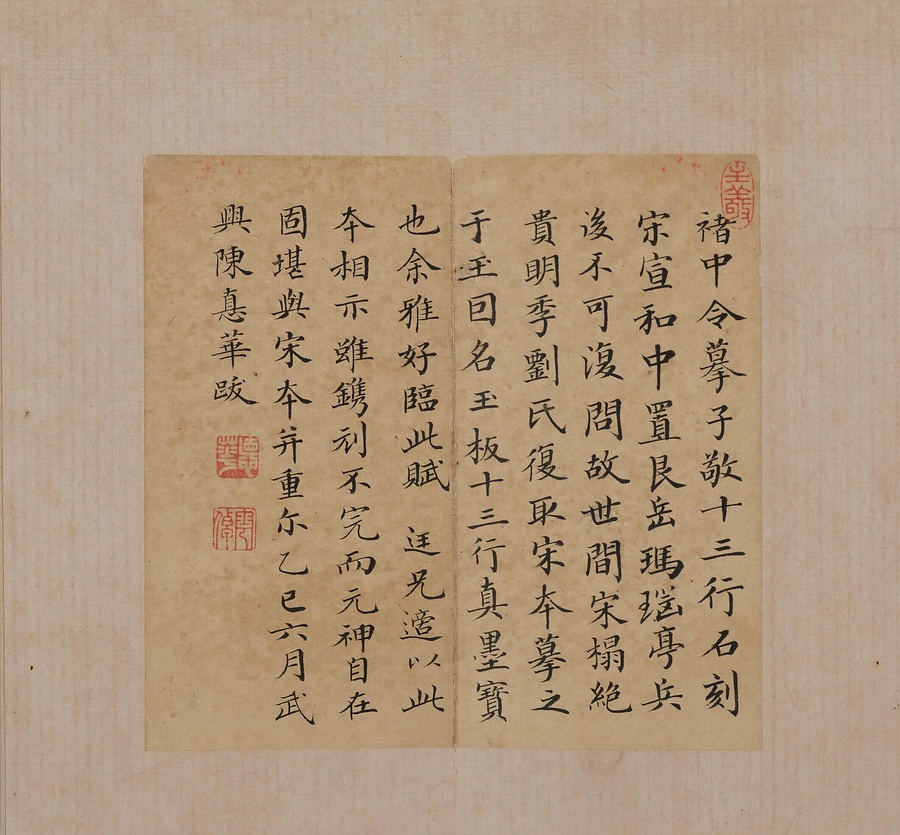 褚中令摹子敬十三行石刻
宋宣和中置艮岳瑪瑙亭兵
後不可復問故世間宋榻絶
貴明季劉氏復取宋本摹之
于玉回名玉板十三行真墨寶
也余雅好臨此賦 迋兄適以此
本相示雖鐫刻不完而元神自在
固堪與宋本并重尔乙巳六月武
興陳惪華跋